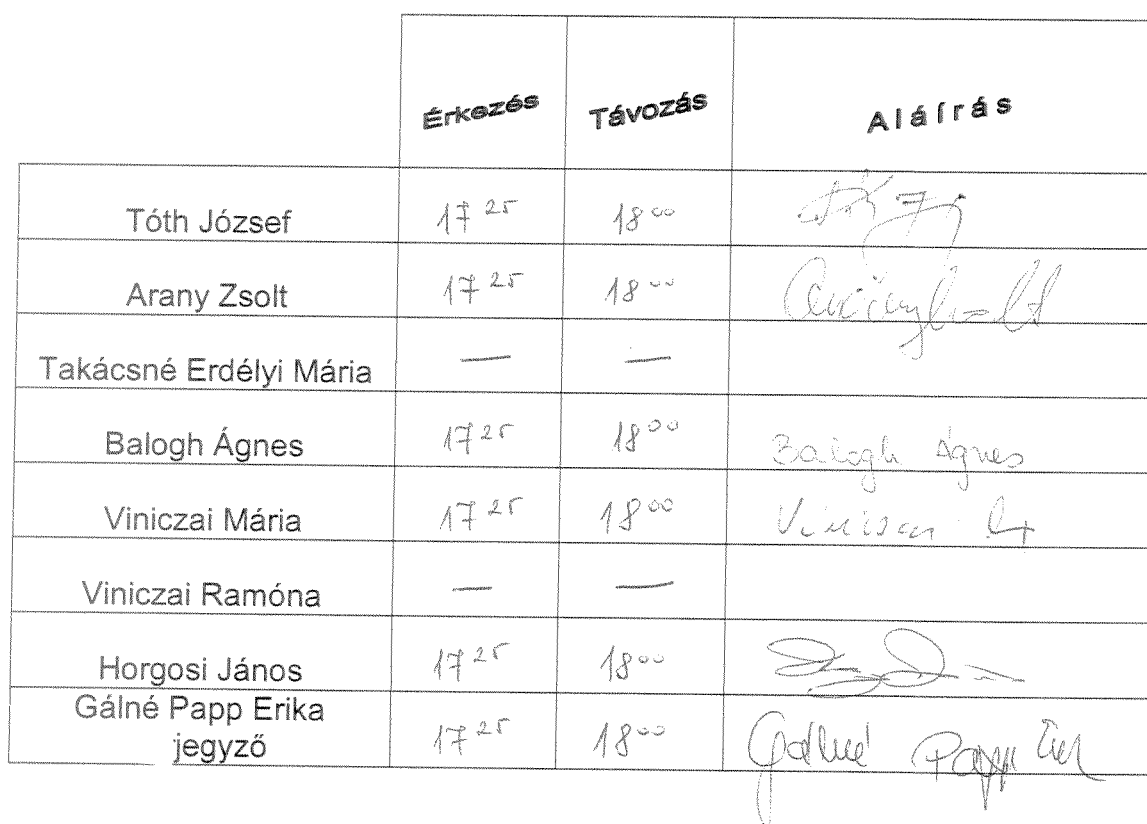 Érkezés Távozás Aláírás
Tóth József 17 25 18 00
Arany Zsolt 17 25 18 00
Takácsné Erdélyi Mária — —
Balogh Ágnes 17 25 18 00 Balogh Ágnes
Viniczai Mária 17 25 18 00
Viniczai Ramóna — —
Horgosi János 17 25 18 00
Gálné Papp Erika
jegyző 17 25 18 00 Gálné Papp